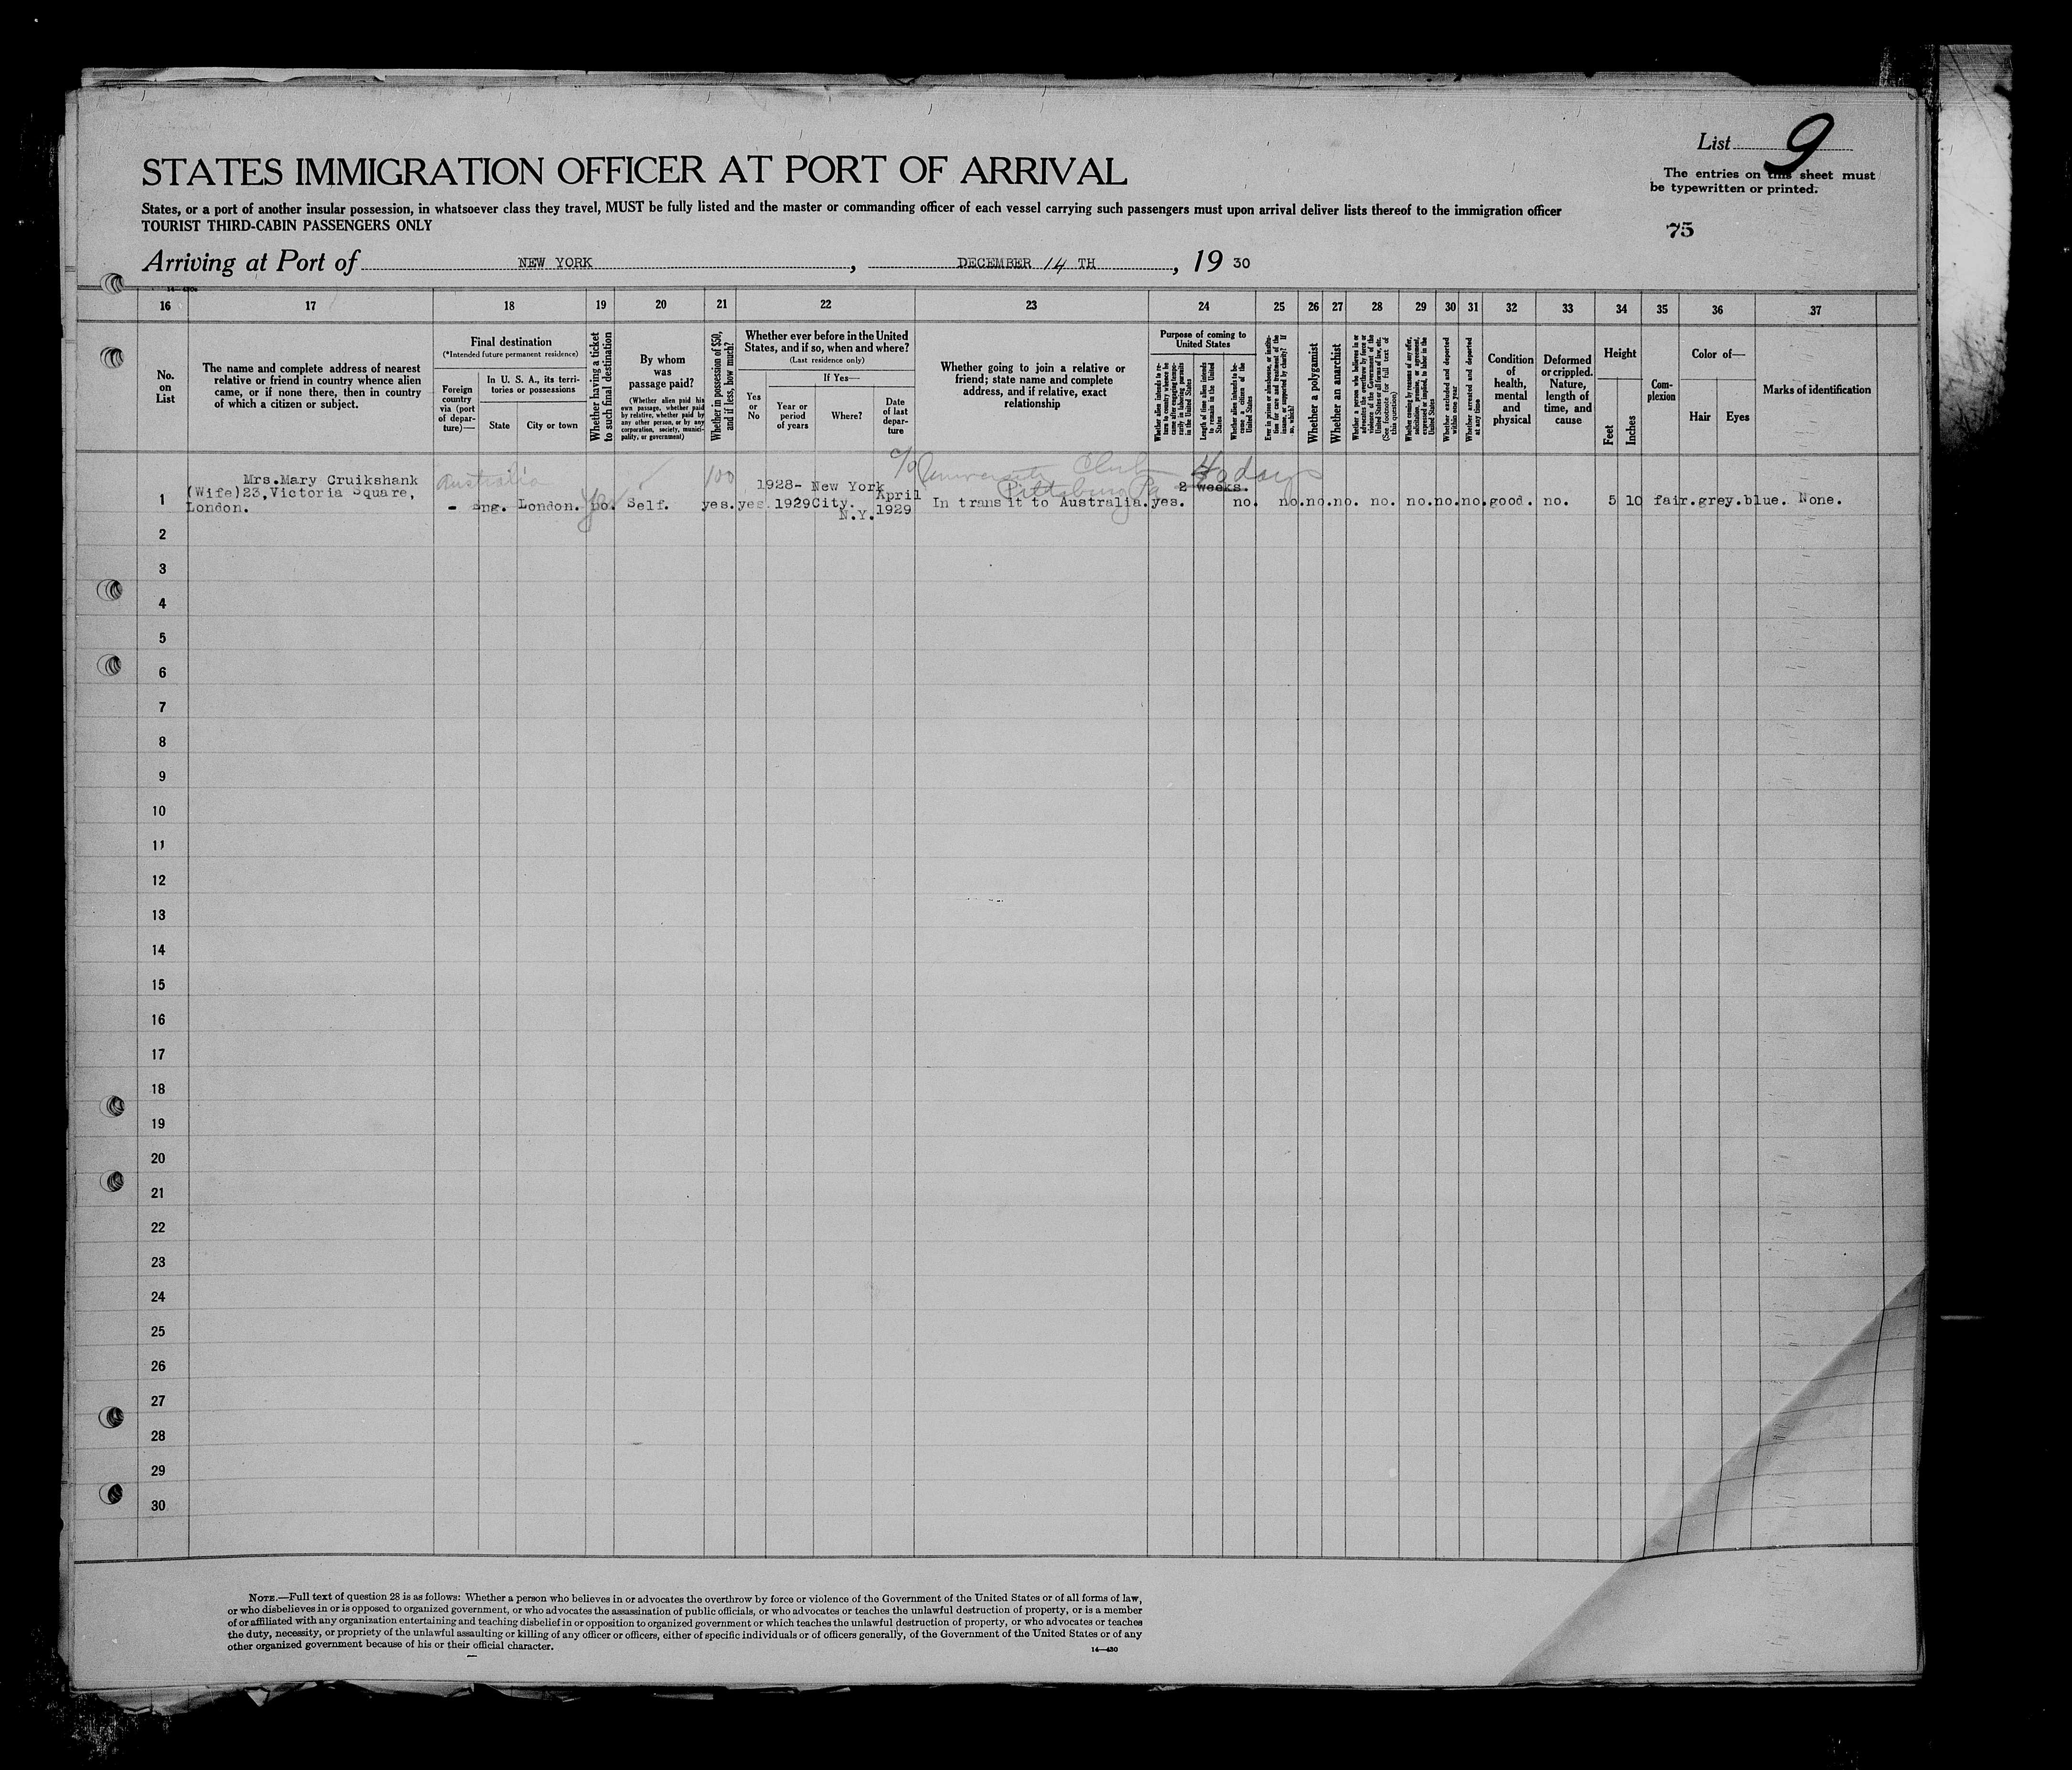 List 9
The entries on this sheet must
be typewritten or printed.
75
STATES IMMIGRATION OFFICER AT PORT OF ARRIVAL
States, or a port of another insular possession, in whatsoever class they travel, MUST be fully listed and the master or commanding officer of each vessel carrying such passengers must upon arrival deliver lists thereof to the immigration officer
TOURIST THIRD-CABIN PASSENGERS ONLY
Arriving at Port of NEW YORK, DECEMBER 14 TH, 19 30
16 17 18 19 20 21 22 23 24 25 26 27 28 29 30 31 32 33 34 35 36 37
No.
on
List
The name and complete address of nearest
relative or friend in country whence alien
came, or if none there, then in country
of which a citizen or subject.
Final destination
(*Intended future permanent residence)
Foreign
country
via (port
of depar-
ture)—
In U. S. A., its terri-
tories or possessions
State
City or town
Whether having a ticket
to such final destination
By whom
was
passage paid?
(Whether alien paid his
own passage, whether paid
by relative, whether paid by
any other person, or by any
corporation, society, munici-
pality, or government)
Whether in possession of $50,
and if less, how much?
Whether ever before in the United
States, and if so, when and where?
(Last residence only)
Yes
or
No
If Yes—
Year or
period
of years
Where?
Date
of last
depar-
ture
Whether going to join a relative or
friend; state name and complete
address, and if relative, exact
relationship
Purpose of coming to
United States
Whether alien intends to re-
turn to country whence he
came after engaging tempo-
rarily in laboring pursuits
in the United States
Length of time alien intends
to remain in the United
States
Whether alien intends to be-
come a citizen of the
United States
Ever in prison or almshouse, or institu-
tion for care and treatment of the
insane, or supported by charity? If
so, which?
Whether a polygamist
Whether an anarchist
Whether a person who believes in or
advocates the overthrow by force or
violence of the Government of the
United States or all forms of law, etc.
(See footnote for full text of
this question)
Whether coming by reasons of any offer,
solicitation, promise, or agreement,
expressed or implied, to labor in the
United States
Whether excluded and deported
within one year
Whether arrested and deported
at any time
Condition
of
health,
mental
and
physical
Deformed
or crippled.
Nature,
length of
time, and
cause
Height
Feet
Inches
Com-
plexion
Color of—
Hair Eyes
Marks of identification
Australia 100 c/o University Club 40 days
Mrs.Mary Cruikshank 1928- New York Pittsburg Pa 2 weeks.
1 (Wife)23,Victoria Square, - Eng. London. no. yes Self. yes. yes. 1929 City. April In transit to Australia. yes. no. no. no. no. no. no. no. no. good. no. 5 10 fair. grey. blue. None.
London. N.Y. 1929
2
3
4
5
6
7
8
9
10
11
12
13
14
15
16
17
18
19
20
21
22
23
24
25
26
27
28
29
30
NOTE.—Full text of question 28 is as follows: Whether a person who believes in or advocates the overthrow by force or violence of the Government of the United States or of all forms of law,
or who disbelieves in or is opposed to organized government, or who advocates the assassination of public officials, or who advocates or teaches the unlawful destruction of property, or is a member
of or affiliated with any organization entertaining and teaching disbelief in or opposition to organized government or which teaches the unlawful destruction of property, or who advocates or teaches
the duty, necessity, or propriety of the unlawful assaulting or killing of any officer or officers, either of specific individuals or of officers generally, of the Government of the United States or of any
other organized government because of his or their official character.
14—430